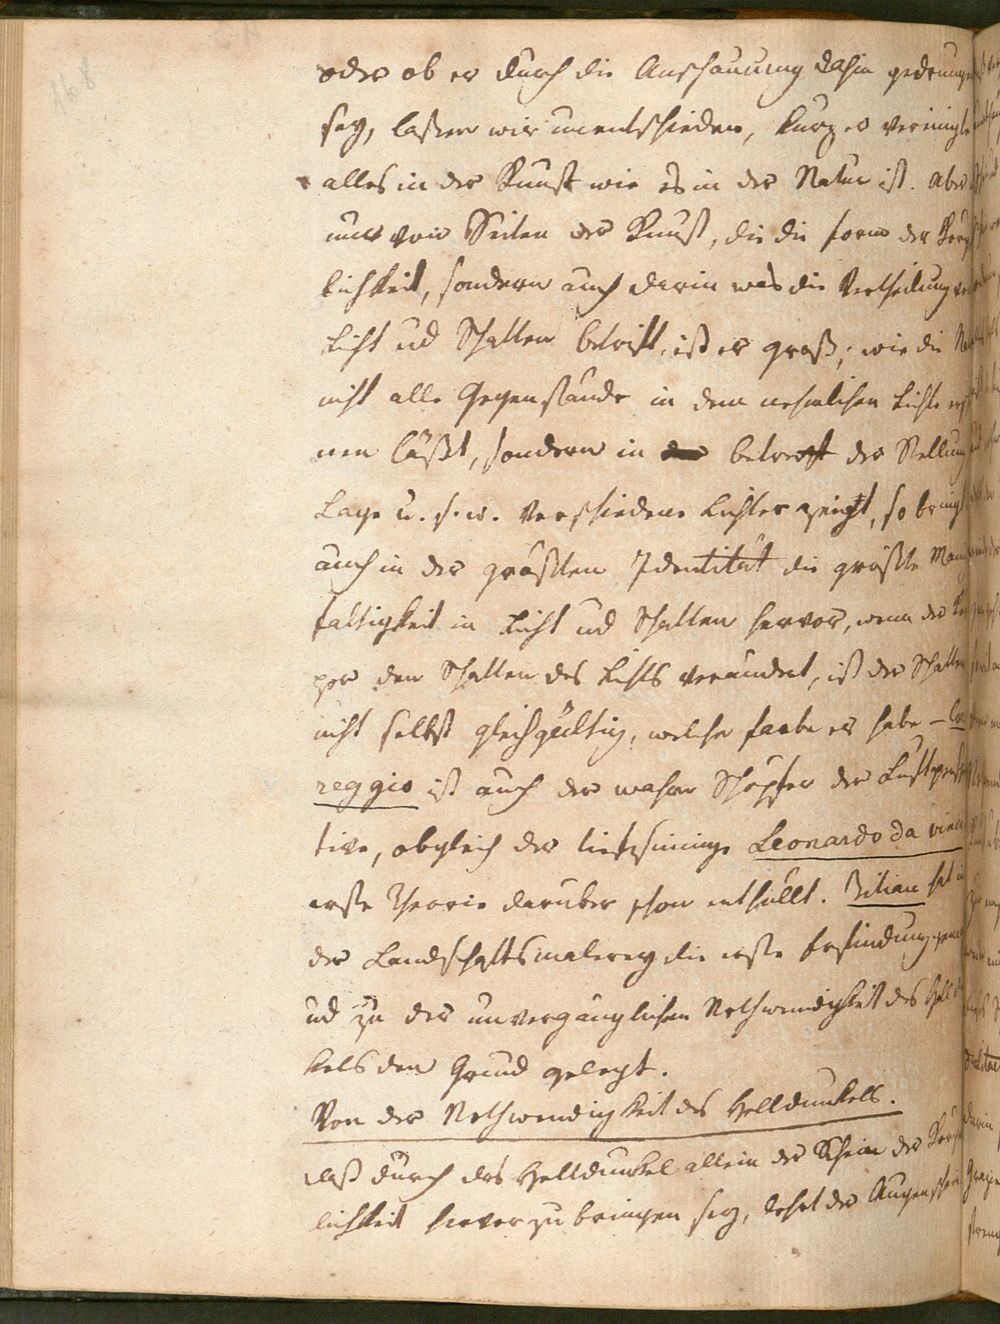 168
oder ob er durch die Anschauung dahin gedrungen
sey, laßen wir unentschieden, kurz er vereinigte
alles in der Kunst wie es in der Natur ist. Aber
nur von Seiten der Kunst, die die Form der Körp
lichkeit, sondern auch darin was die Vertheilung von
Licht ud Schatten betrift, ist er groß; wie die Na
nicht alle Gegenstände in dem nehmlichen Lichte ersch
nen läßt, sondern in betreff der Stellung
Lage u. s. w. verschiedene Lichter zeigt, so bringt
auch in der größten Identität die größte Man
faltigkeit in Licht ud Schatten hervor, wenn der Kör
per den Schatten des Lichts verändert, ist der Schatten
nicht selbst gleichgültig, welche Farbe er habe – Cor
reggio ist auch der wahre Schöpfer der Luftperspek
tive, obgleich der tiefsinnige Leonardo da vinci
erste Theorie darüber schon enthüllt. Titian hat in
der Landschaftsmalerey die erste Erfindung gemacht
ud zu der unvergänglichen Nothwendigkeit des Helldun
kels den Grund gelegt.
Von der Nothwendigkeit des Helldunkels.
daß durch das Helldunkel allein der Schein der Körper
lichkeit hervorzubringen sey, lehrt der Augenschein